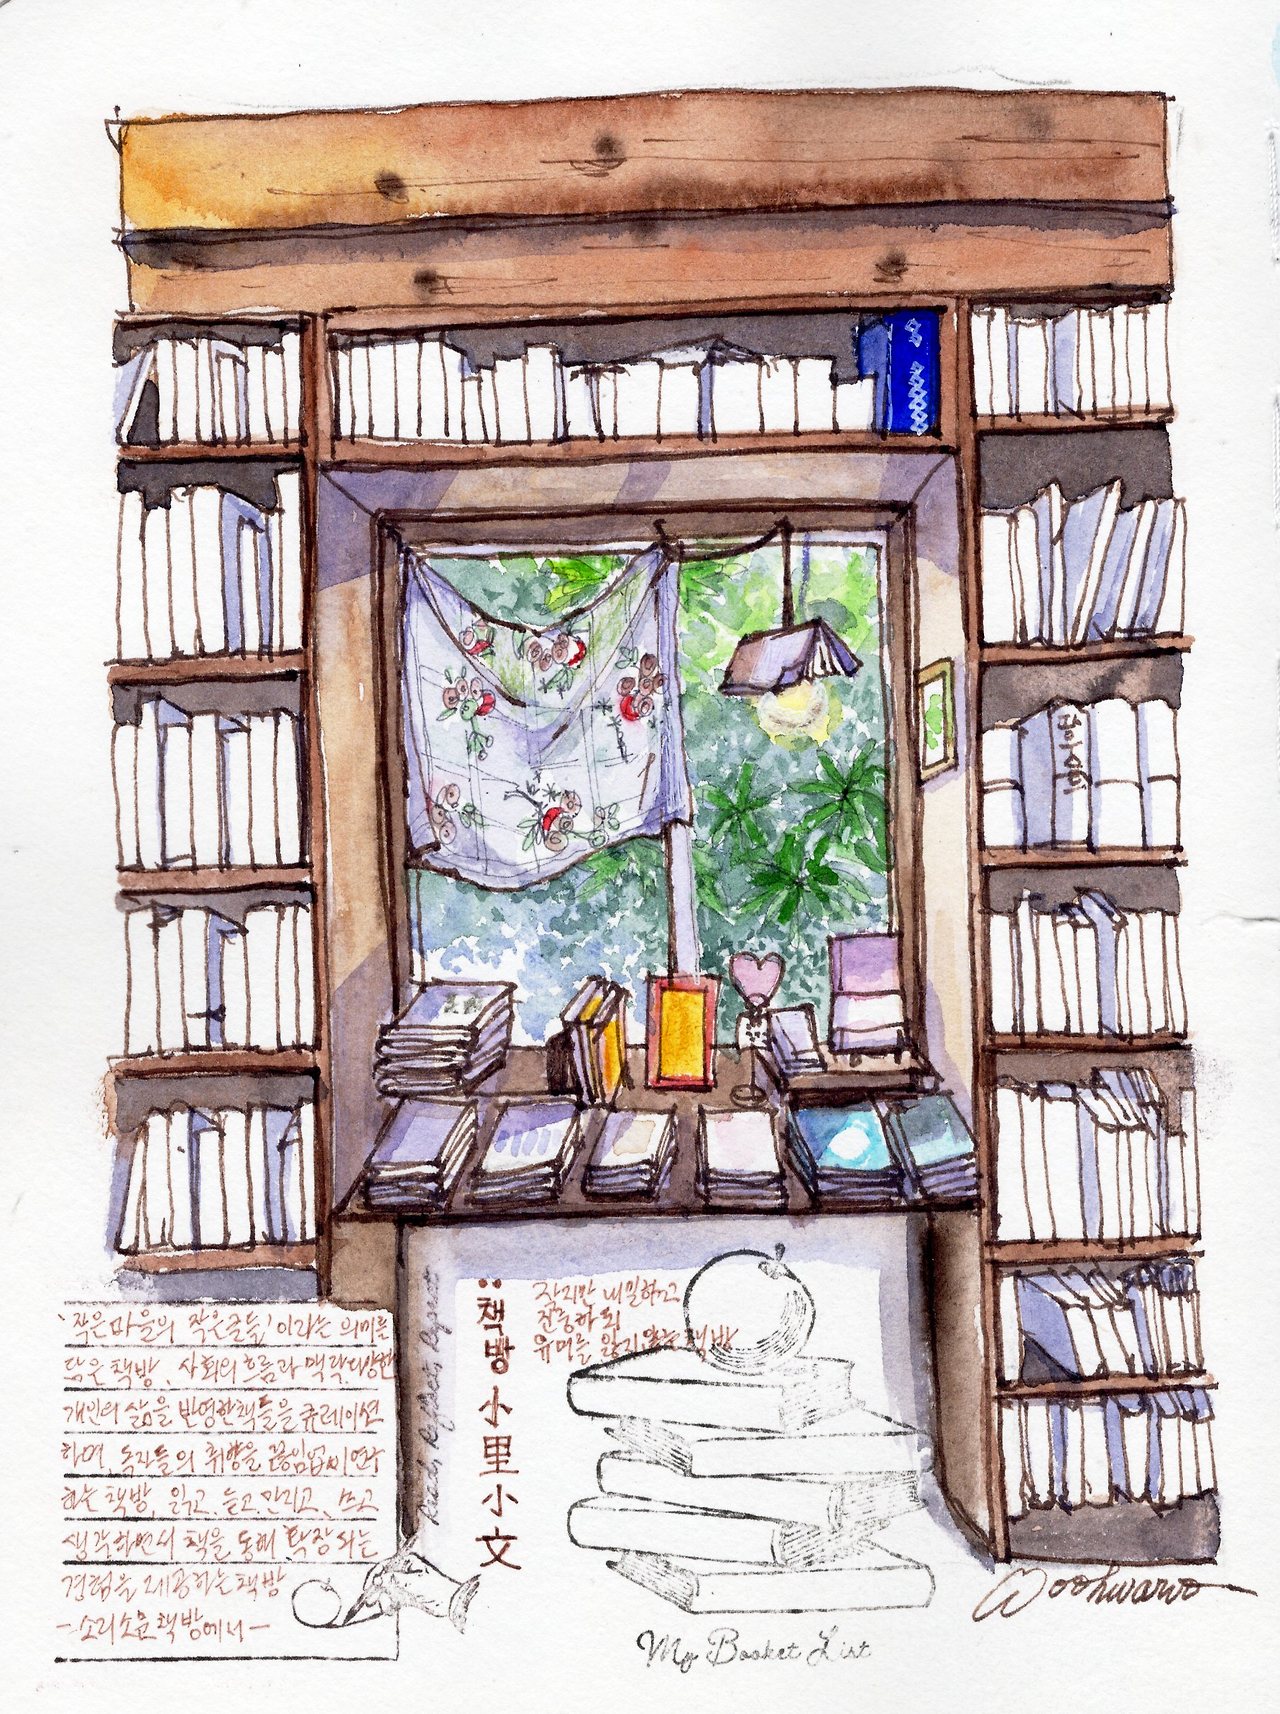 책방 小里小文
작지만 내밀하고
진중하되
유머를 잃지않는 책방
Read, Reflect, Repeat
'작은마을의 작은글들'이라는 의미를
담은 책방, 사회의 흐름과 맥락,다양한
개인의 삶을 반영한책들을 큐레이션
하며, 독자들의 취향을 끊임없이연구
하는 책방, 읽고, 듣고,만지고, 쓰고
생각하면서 책을 통해 확장되는
경험을 제공하는책방
-소리소문책방에서-
My Booket List